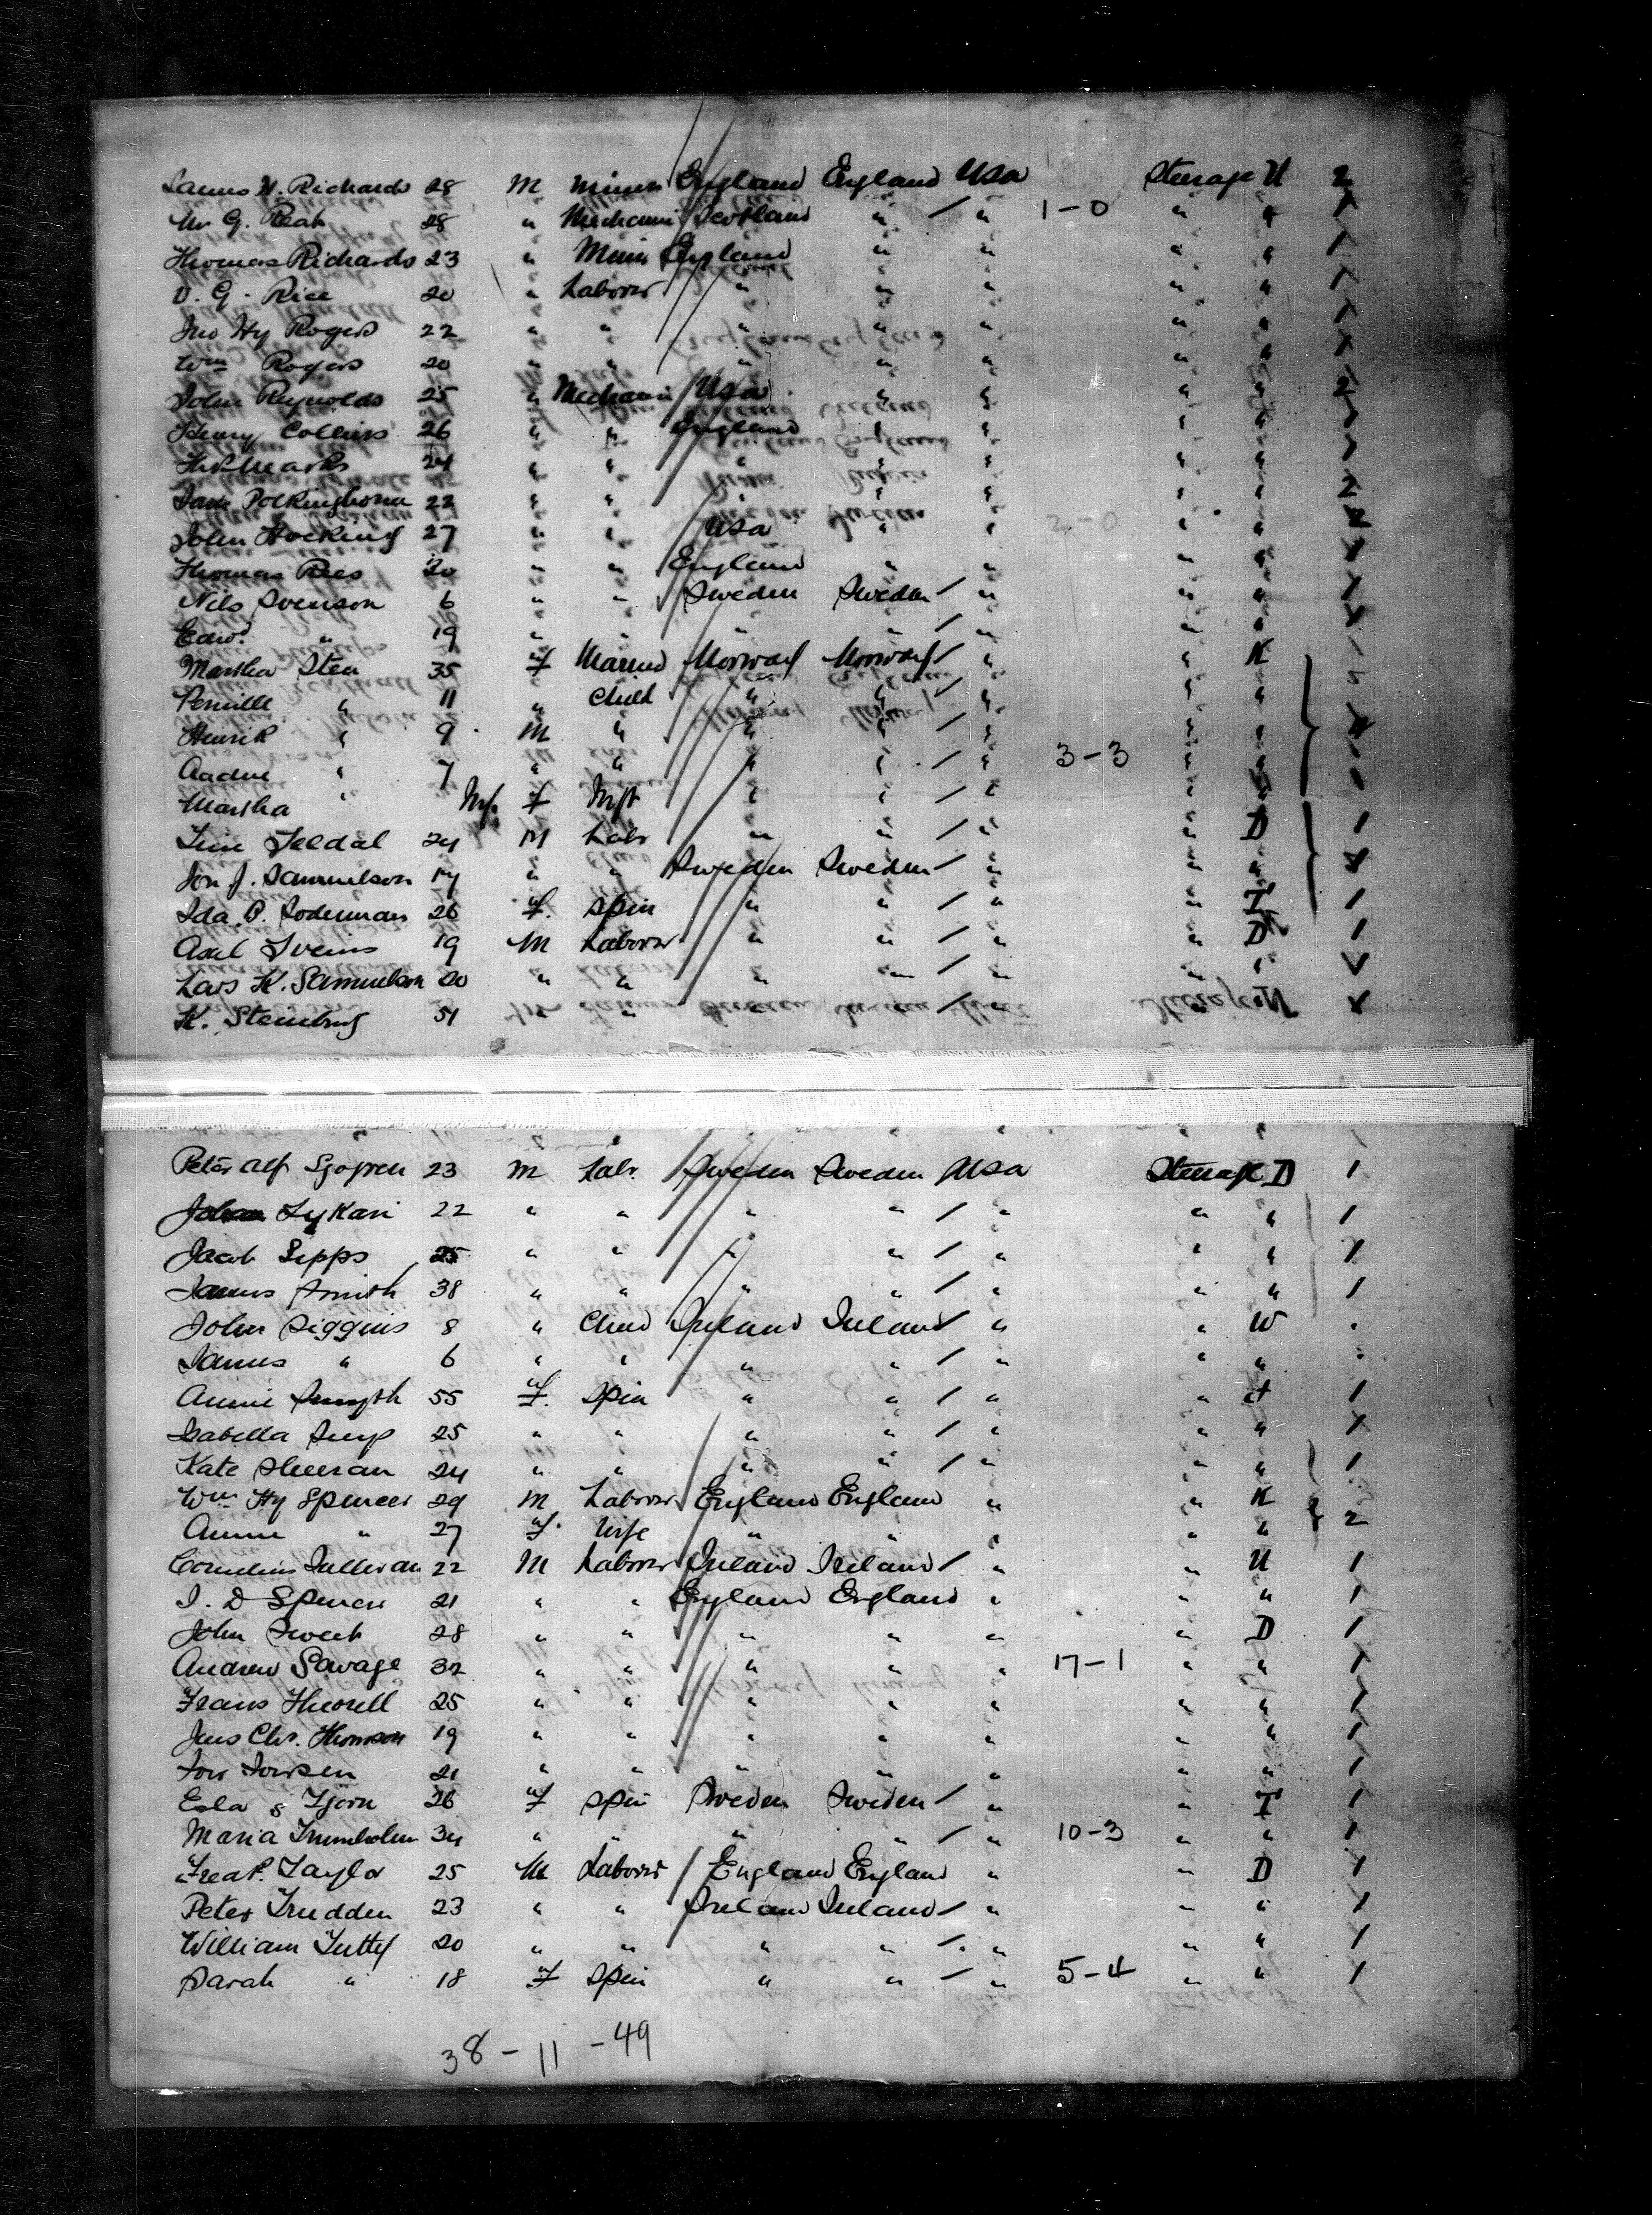 James H. Richards 28 M Miner England England USA Steerage U 2
Wm G. Peak 28 " Mechani Scotland " / " 1-0 " " 1
Thomas Richards 23 " Miner England " " " " 1
V. G. Rice 20 " Laborer " " " " " 1
Jno Hy Rogers 22 " " " " " " " 1
Wm Rogers 20 " " " " " " " 1
John Reynolds 25 " Mechani USA " " " " 2
Henry Collins 26 " " England " " " " 1
Thos Marks 24 " " " " " " " 1
Jas Polkinghorne 22 " " " " " " " 2
John Hocking 27 " " USA " " " "
Thomas Rees 20 " " England " " " " 1
Nils Svenson 6 " " Sweden Sweden / " " " 1
Edwd " 19 " " " " / " " " 1
Martha Sten 35 f Married Norway Norway / " " K
Pernille " 11 " Child " " / " " "
Henrik " 9 M " " " / " " "
" 7 " " " " / " 3-3 " " 1
Martha " Inf. f Inft " " / " " "
Feldal 24 M Labr " " / " " D 1
Jon J. Samuelson 17 " " Sweden Sweden / " " "
Ida P. Soderman 26 f. Spin " " / " " I 1
Axel Sveins 19 M Laborer " " / " " D 1
Lars K. Samuelson 20 " " " " / " " "
K. Stenberg 51 " /
Peter Alf Sjogren 23 M Labr. Sweden Sweden USA Steerage D 1
Johan Lykari 22 " " " " / " " " 1
Jacob Sepps 25 " " " " / " " " 1
James Smith 38 " " " " / " " " 1
John Siggins 8 " Child Ireland Ireland / " " W "
James " 6 " " " " / " " " "
Annie Smyth 55 f. Spin " " / " " I 1
Isabella 25 " " " " / " " " 1
Kate Sheeran 24 " " " " / " " " 1
Wm Hy Spencer 29 M Laborer England England " " K
Annie " 27 f. Wife " " " " " 2
Cornelius Sullivan 22 M Laborer Ireland Ireland / " " U 1
J. D Spencer 21 " " England England " " " 1
John Sweet 28 " " " " " " D 1
Andrew Savage 32 " " " " " 17-1 " " 1
Frans Thorell 25 " " " " " " " 1
Jens Chr. Thomson 19 " " " " " " " 1
21 " " " " " " " 1
Esla S Tjorn 26 f Spin Sweden Sweden / " " I 1
Maria Trumholm 34 " " " " / " 10-3 " " 1
Fredk. Taylor 25 M Laborer England England " " D 1
Peter Trudden 23 " " Ireland Ireland / " " " 1
William Tutty 20 " " " " / " " " 1
Sarah " 18 f Spin " " / " 5-4 " " 1
38 - 11 - 49